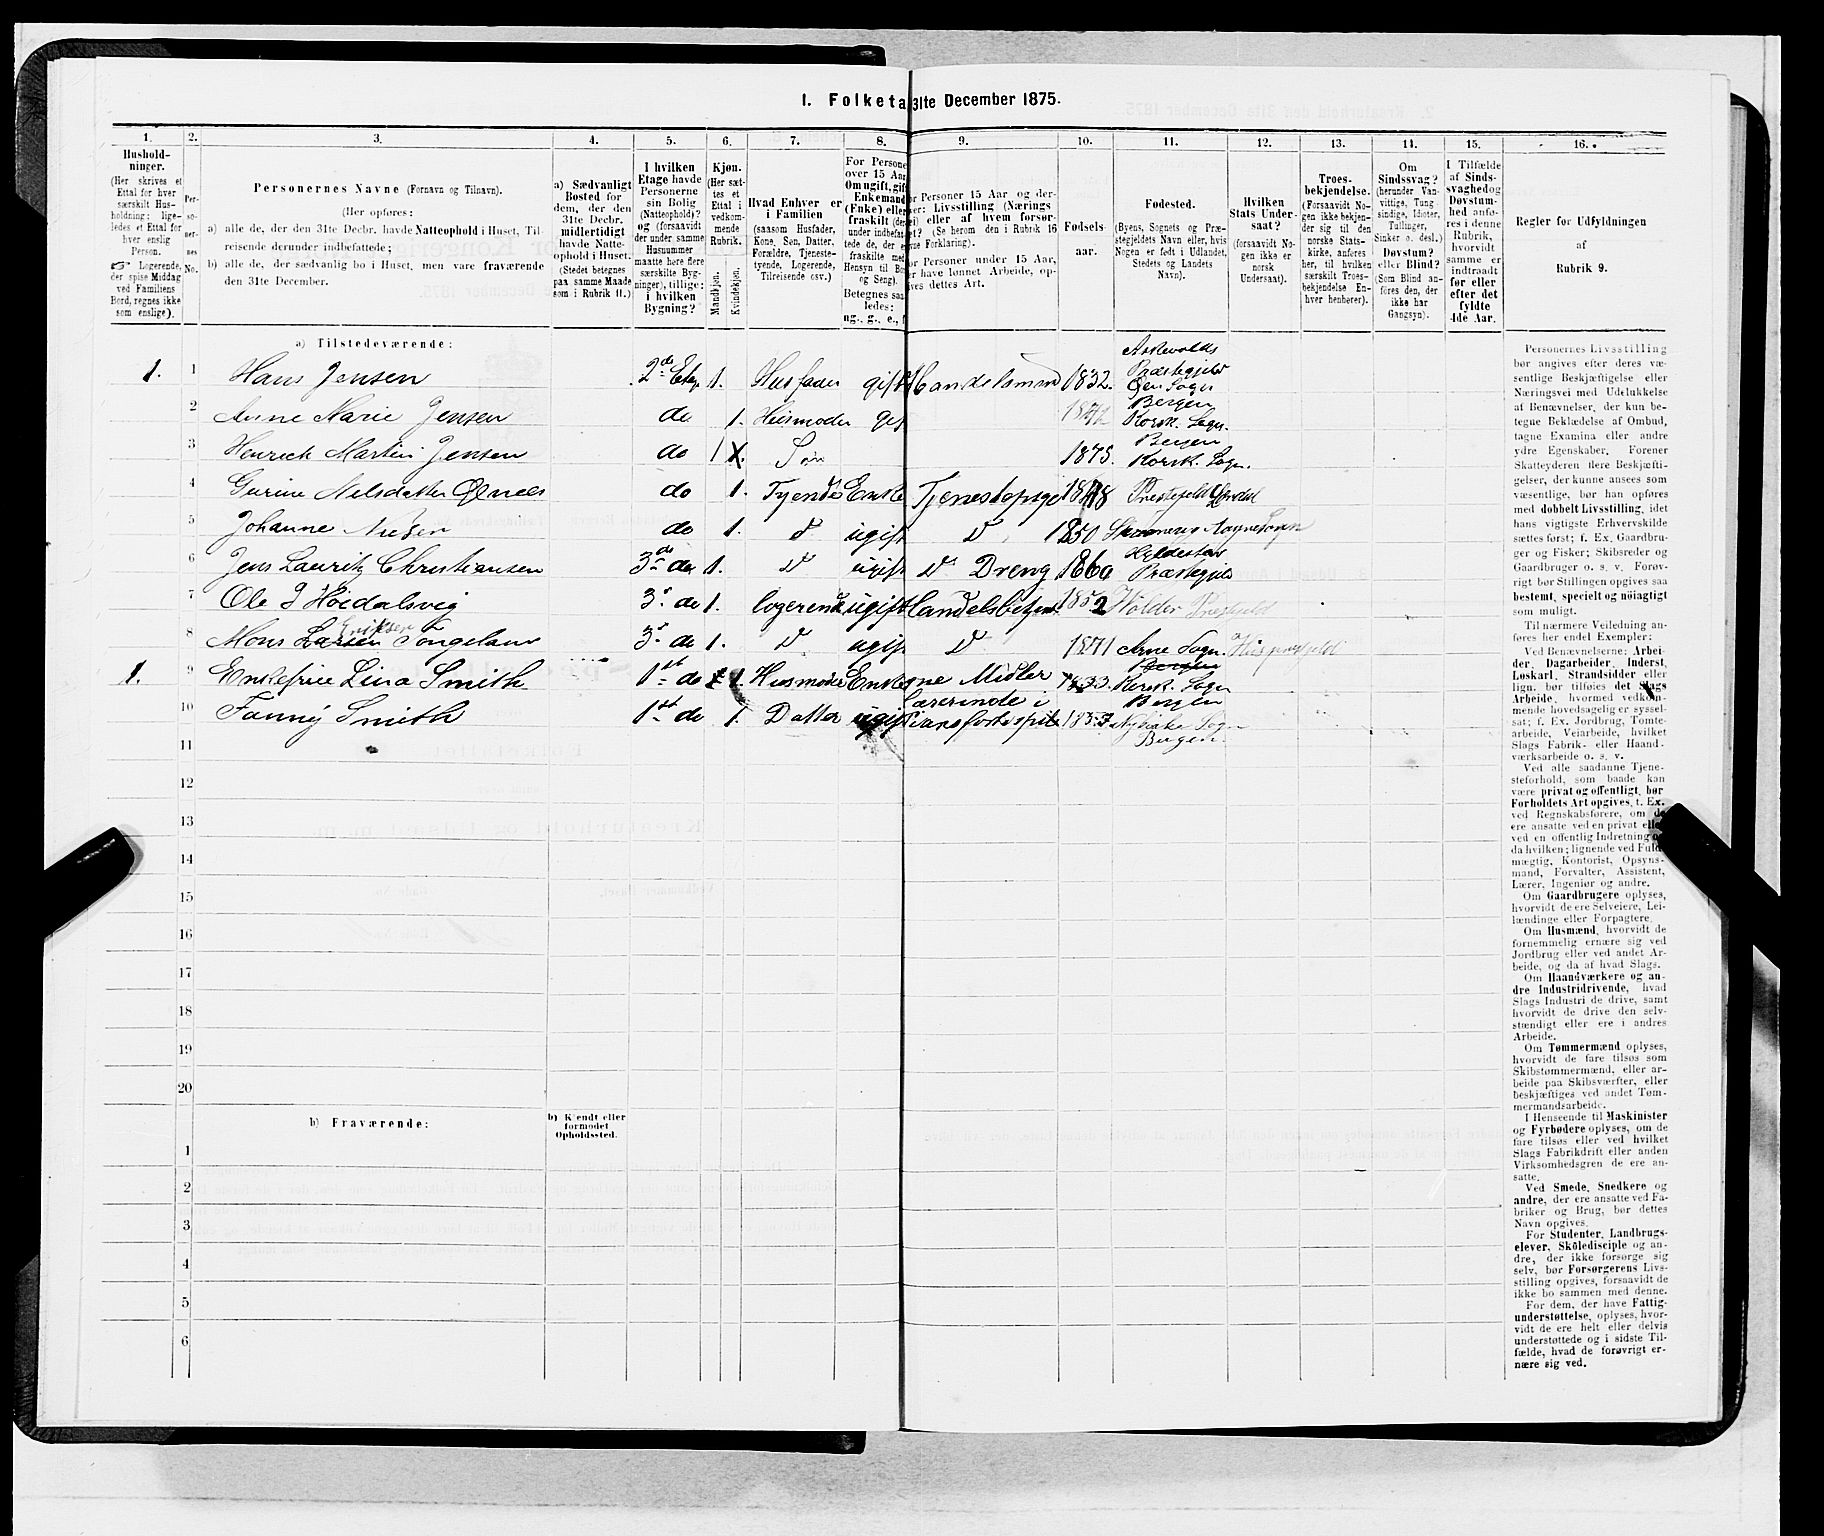 1. Folketa
31te December 1875.
1. 2. 3. 4. 5. 6. 7. 8. 9. 10. 11. 12. 13. 14. 15. 16.
Hushold-
ninger.
(Her skrives et
Ettal for hver
særskilt Hus-
holdning; lige-
ledes et Ettal for
hver enslig
Person.
Logerende,
der spise Middag
ved Familiens
Bord, regnes ikke
som enslige).
Per-
so-
ner-
nes
No.
Personernes Navne (Fornavn og Tilnavn).
(Her opføres:
a) alle de, der den 31te Decbr. havde Natteophold i Huset, Til-
reisende derunder indbefattede;
b) alle de, der sædvanlig bo i Huset, men vare fraværende
den 31te December.
a) Sædvanligt
Bosted for
dem, der den
31te Decbr.
midlertidigt
havde Natte-
ophold i Huset.
(Stedet betegnes
paa samme Maade
som i Rubrik 11.)
I hvilken
Etage havde
Personerne
sin Bolig
(Natteophold)?
og (forsaavidt
der under samme
Husnummer
maatte høre flere
særskilte Byg-
ninger), tillige:
i hvilken
Bygning?
Kjøn.
(Her sæt-
tes et
Ettal i
vedkom-
mende
Rubrik.)
Mandkjøn.
Kvindekjøn.
Hvad Enhver er
i Familien
(saasom Husfader,
Kone, Søn, Datter,
Forældre, Tjeneste-
tyende, Logerende,
Tilreisende osv.)
For Persone
over 15 Aar
Om ugift, gift
Enkemand
(Enke) eller
fraskilt (der
under indbefat
tede de, der e
fraskilte med
Hensyn til Bo
og Seng).
Betegnes saa
ledes:
ug., g., e., f
or Personer 15 Aar og der-
ver: Livsstilling (Nærings
ei) eller af hvem forsør-
get? (Se herom den i Rubrik 16
ne Forklaring).
or Personer under 15 Aar,
er have lønnet Arbeide, op-
ives dettes Art.
Fødsels-
aar.
Fødested.
(Byens, Sognets og Præ-
stegjeldets Navn eller, hvis
Nogen er født i Udlandet,
Stedets og Landets
Navn).
Hvilken
Stats Under-
saat?
(forsaavidt No-
gen ikke er
norsk
Undersaat).
Troes-
bekjendelse.
(Forsaavidt No-
gen ikke bekjen-
der sig til den
norske Stats-
kirke, anføres
her, til hvilken
særskilt Troes-
bekjendelse En-
hver henhører).
Om
Sindssvag?
(herunder Van-
vittige, Tung
sindige, Idioter,
Tullinger,
Sinker o. desl.)
Døvstum?
eller Blind?
(Som Blind an-
føres den, der
ikke har
Gangsyn).
I Tilfælde
af Sinds-
svaghed og
Døvstum-
hed anfø-
res i denne
Rubrik,
hvorvidt
samme er
indtraadt
før eller
efter det
fyldte
4de Aar.
Regler for Udfyldningen
af
Rubrik 9.
a) Tilstedeværende:
1. 1 Hans Jensen 2den Etage 1. Husfader gift Handelsmand 1832. Askevolds Præstegjeld Øen Sogn
2 Anne Marie Jensen do 1. Husmoder gift 1842 Bergen Korsk. Sogn.
3 Henrich Martin Jensen do 1 Søn 1875. Bergen Korsk. Sogn.
4 Gurine Nilsdatter do 1. Tyende Enke 1848
5 Johanne do 1. d ugift D 1850
6 Jens Lauritz Christiansen 3de do 1. D ugift D Dreng 1860 Præstegjeld
7 Ole 3 do 1. logerende ugift Handelsbetjent 1852
8 Mons Larsen Eriksen Tongeland 3 do 1. D ugift D 1871 Arne Sogn.
1. 9 Enkefrue Lina Smith 1st do 1. Husmoder Enke ne Midler 1833 Bergen Korsk. Sogn Bergen
10 Fanny Smith 1st do 1. Datter ugift Lærerinde i Pianofortespil 1853 Nykirke Sogn Bergen.
11
12
13
14
15
16
17
18
19
20
b) Fraværende:
b) Kjendt eller
formodet
Opholdssted.
1
2
3
4
5
6
Personernes Livsstilling
bør angives efter deres væ-
sentlige Beskjæftigelse eller
Næringsvei med Udelukkelse
af Benævnelser, der kun be-
tegne Beklædelse af Ombud,
tagne Examina eller andre
ydre Egenskaber. Forener
Skatteyderen flere Beskjæfti-
gelser, der kunne ansees som
væsentlige, bør han opføres
med dobbelt Livsstilling, idet
hans vigtigste Erhvervskilde
sættes først; f. Ex. Gaardbru-
ger og Fisker; Skibsreder og
Gaardbruger o. s. v. Forøv-
rigt bør Stillingen opgives saa
bestemt, specielt og nøiagtigt
som muligt.
Til nærmere Veiledning an-
føres her endel Exempler:
Ved Benævnelserne: Arbei-
der, Dagarbeider, Inderst,
Løskarl, Strandsidder eller
lign. bør tilføies det Slags
Arbeide, hvormed vedkom-
mende hovedsagelig er syssel-
sat; f. Ex. Jordbrug, Tomte-
arbeide, Veiarbeide, hvilket
Slags Fabrik- eller Haand-
værksarbeide o. s. v.
Ved alle saadanne Tjene-
steforhold, som baade kan
være privat og offentligt, bør
Forholdets Art opgives, t. Ex.
ved Regnskabsførere, om de
ere ansatte ved en privat eller
ved en offentlig Indretning og
da hvilken; lignende ved Fuld-
mægtig, Kontorist, Opsyns-
mand, Forvalter, Assistent,
Lærer, Ingeniør og andre.
Om Gaardbrugere oplyses,
hvorvidt de ere Selveiere, Lei-
lændinge eller Forpagtere.
Om Husmænd, hvorvidt de
fornemmelig ernære sig ved
Jordbrug eller ved andet Ar-
beide, og da af hvad Slags.
Om Haandværkere og an-
dre Industridrivende, hvad
Slags Industri de drive, samt
hvorvidt de drive den selv-
stændigt eller ere i andres
Arbeide.
Om Tømmermænd oplyses,
hvorvidt de fare tilsøs som
Skibstømmermænd, eller ar-
beide paa Skibsværfter, eller
beskjæftiges ved andet Tøm-
mermandsarbeide.
I Henseende til Maskinister
og Fyrbødere oplyses, om de
fare tilsøs eller ved hvilket
Slags Fabrikdrift eller anden
Virksomhedsgren de ere an-
satte.
Ved Smede, Snedkere og
andre, der ere ansatte ved Fa-
briker og Brug, bør dettes
Navn opgives.
For Studenter, Landbrugs-
elever, Skoledisciple og an-
dre, der ikke forsørge sig
selv, bør Forsørgerens Livs-
stilling opgives, forsaavidt de
ikke bo sammen med denne.
For dem, der have Fattig-
understøttelse, oplyses, hvor-
vidt de ere helt eller delvis
understøttede og i sidste Til-
fælde, hvad de forøvrigt er-
nære sig ved.